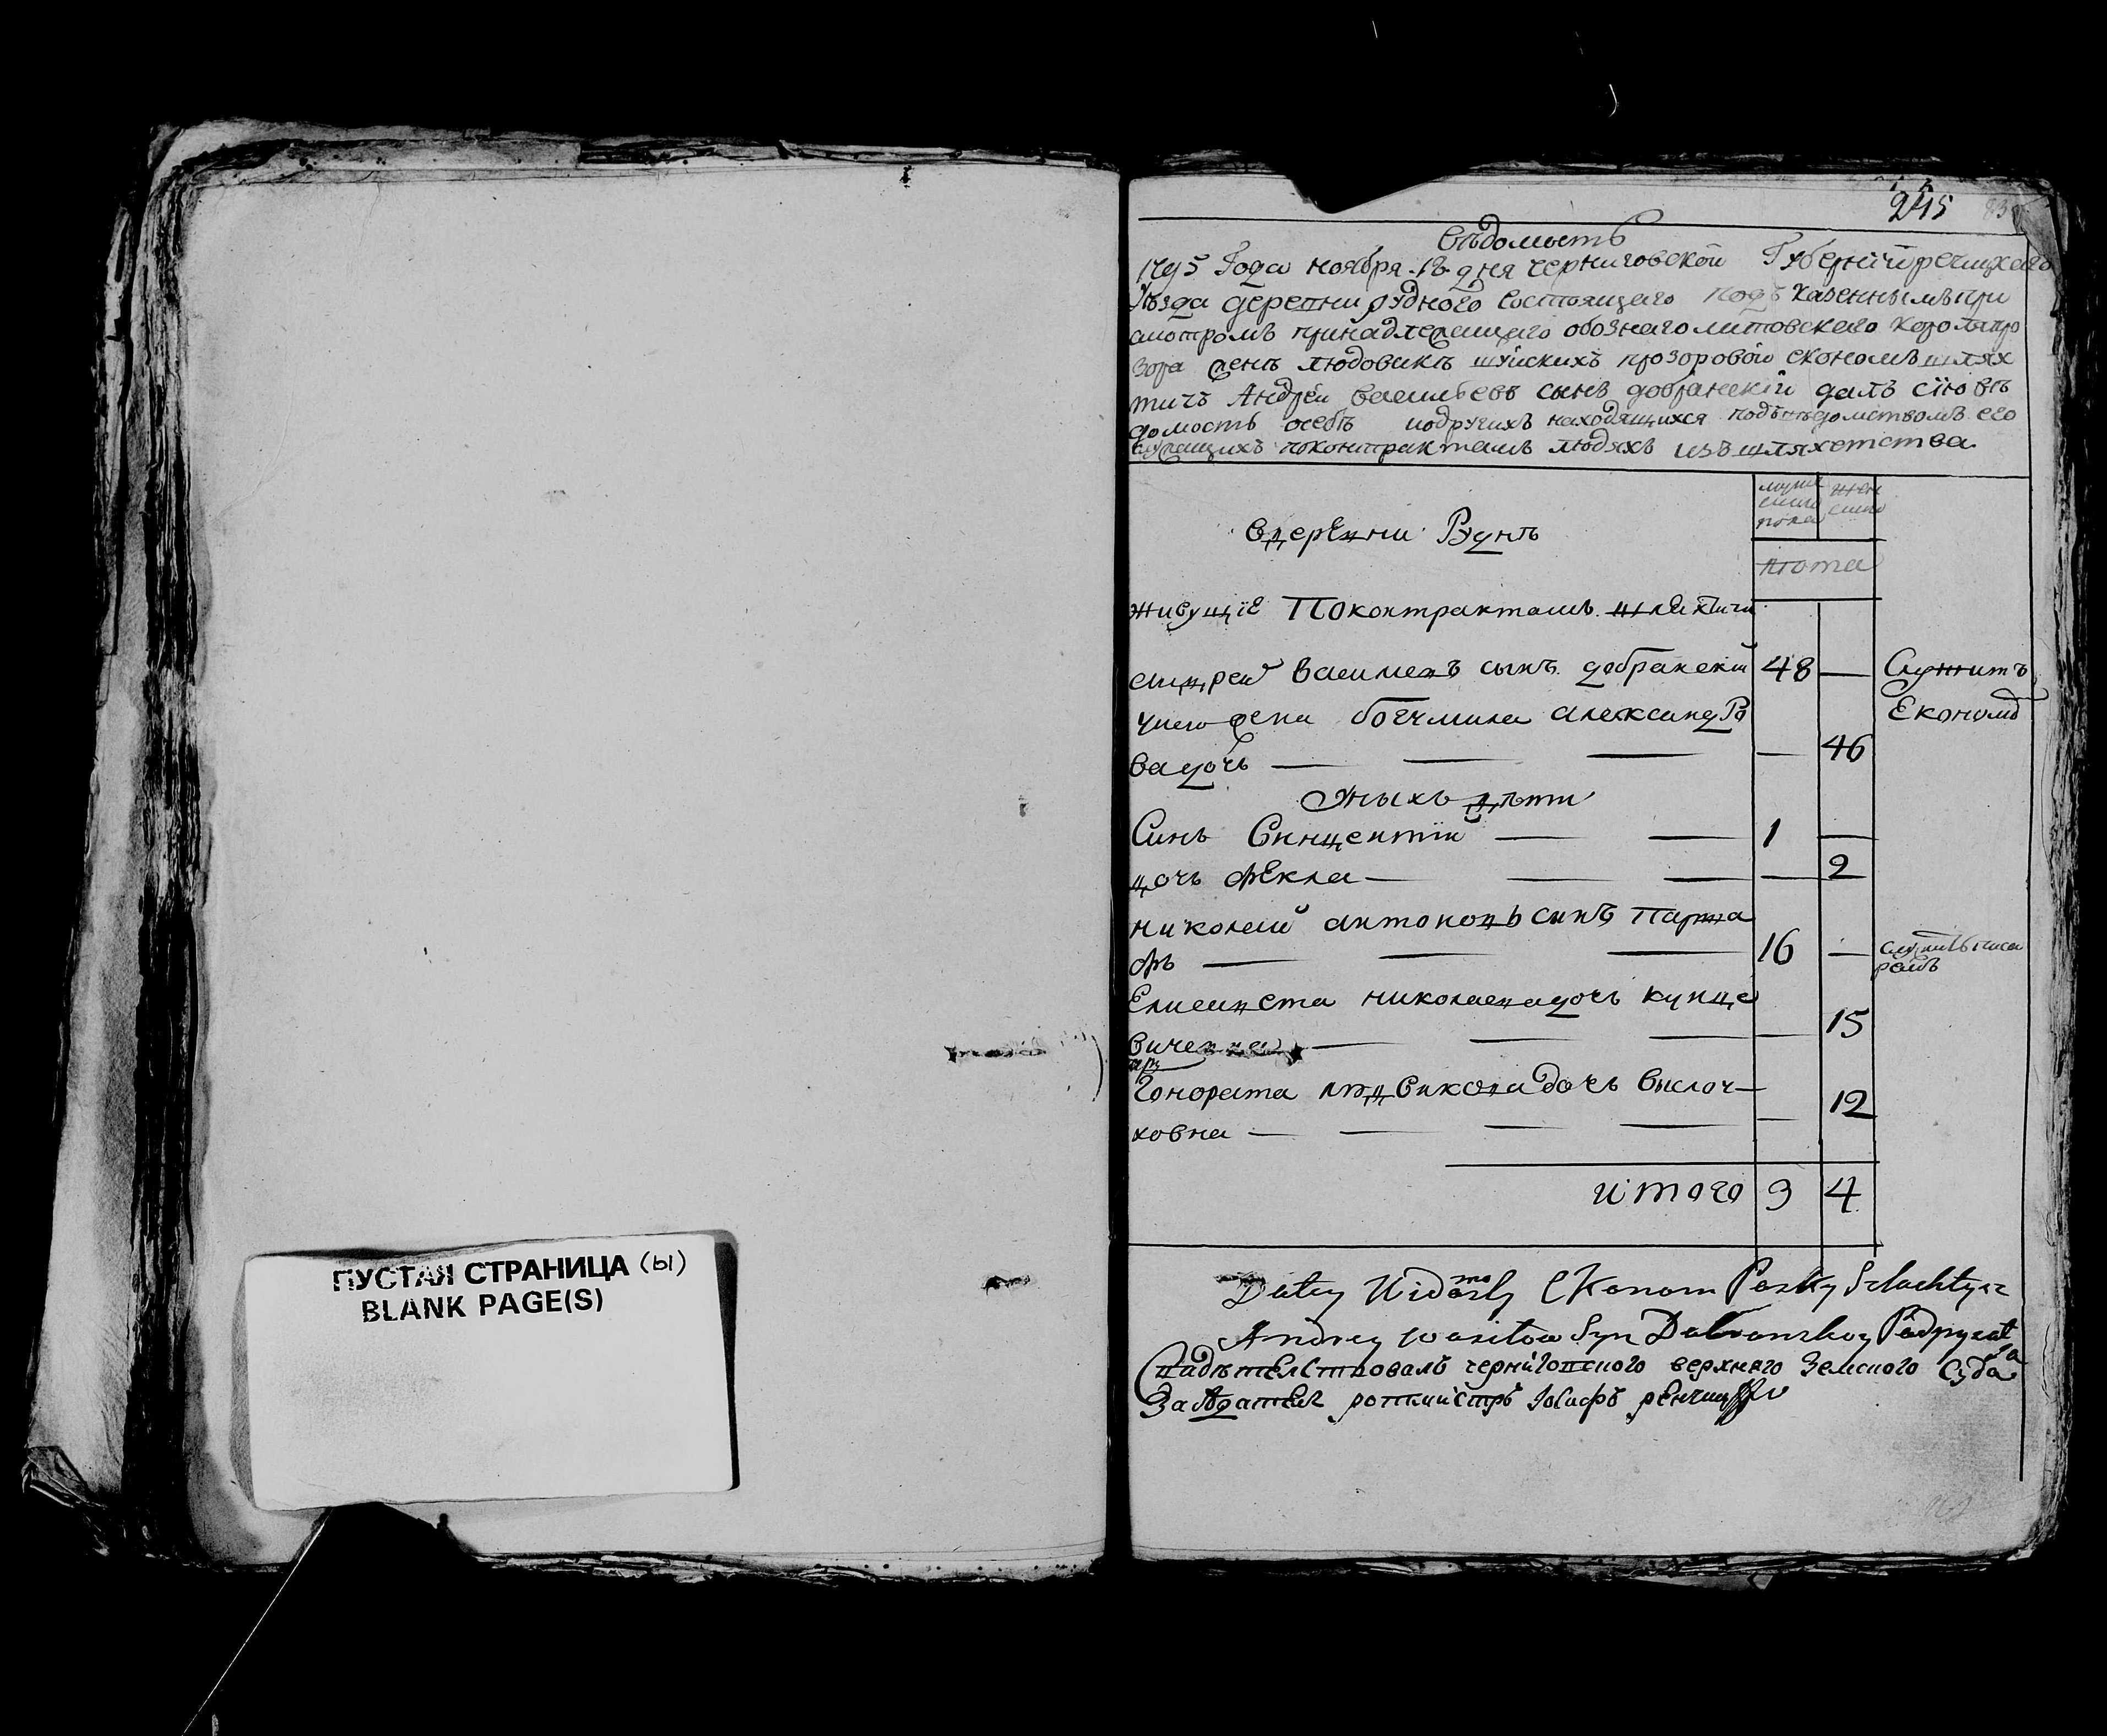 ПУСТАЯ СТРАНИЦА (ы)
BLANK PAGE(S)
245
Вѣдомость
1795 Года ноября 18 дня черниговской Губернии речицкаго
уѣзда деревни рудного состоящаго подъ казеннымъ при
смотромъ принадлежащаго обознаго литовского про
зора женѣ людовикѣ шуйскихъ прозоровой економъ шлях
тичъ Андрей васильевъ сынъ добранский далъ сию вѣ
домость о себѣ и о другихъ находящихся подъ вѣдомствомъ его
по контрактамъ людяхъ изъ шляхетства
мужеска пола
женска
лѣта
в деревни Руднѣ
живущiе По контрактамъ шляхтичи
андрей василевъ сынъ добрански 48 — Служитъ
у него жена богумила александро 
Економо
ва дочь — — — — 46
У ныхъ дѣти
Синъ Винцентiй — — 1 —
дочь фЕкла — — — — 2
николай антоновъ синъ
фъ — — — 16 — служитъ писа
ромъ
Елисавета николаева дочь купце
вичевна — — — — 15
Гонората людвикова дочь высоч-
ковна — — — — — 12
итого 3 4
Ekonom Szlachtycz
Andrey wasilow Syn Dobranskoy
Свидѣтелствовалъ чернiговского верхнего Земского Суда
Засѣдателъ ротмистръ Иосифъ